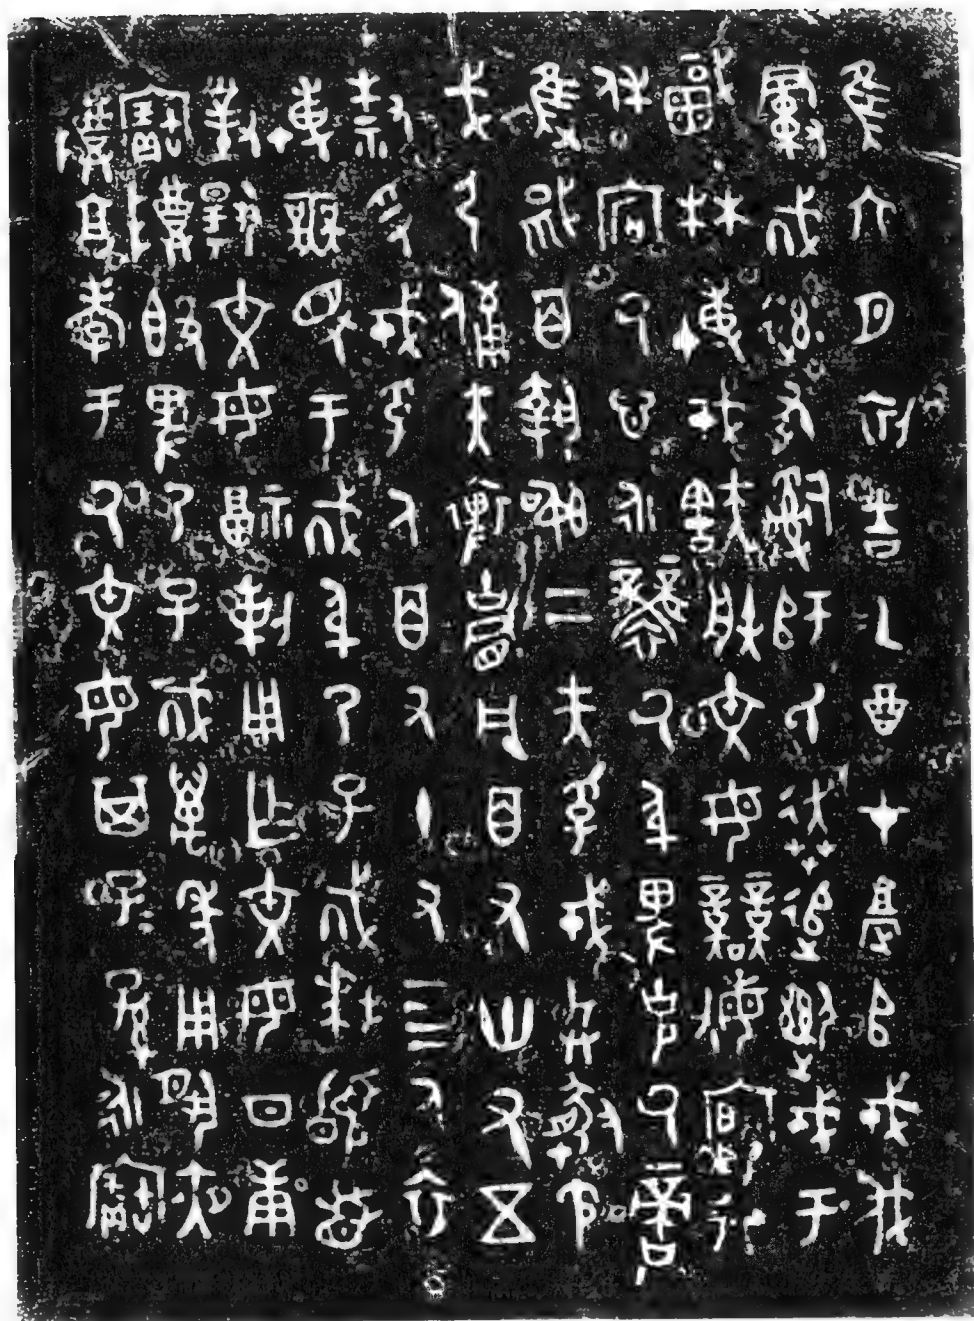 隹六月初吉乙酉才堂𠂤戎伐
𩁹𢦚率有𤔲師氏奔追𢓊戎于
棫林博戎㝬朕文母競敏行
休宕氒心永襲氒身卑克氒啻
隻馘百執訊二夫孚戎兵矛
戈弓備矢裨冑凡百又卅又五
戎孚人百又十又四人衣
博無斁于𢦚身乃子𢦚拜稽首
對揚文母福剌用乍文母日庚
寶尊簋卑乃子𢦚萬年用夙夜
尊享孝于氒文母其子子孫孫永寶